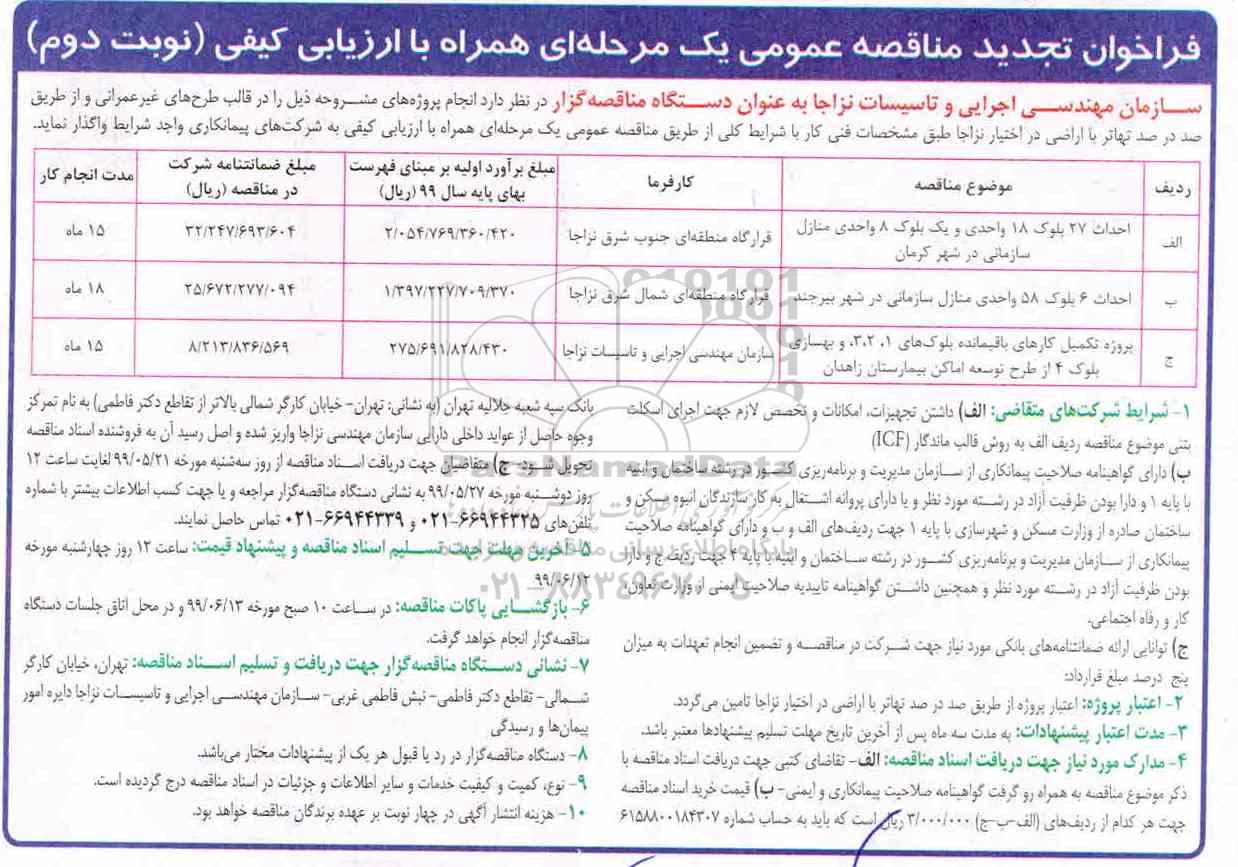 فراخوان تجدید مناقصه عمومی یک مرحله‌ای همراه با ارزیابی کیفی (نوبت دوم)
سازمان مهندسی اجرایی و تاسیسات نزاجا به عنوان دستگاه مناقصه‌گزار در نظر دارد انجام پروژه‌های مشروحه ذیل را در قالب طرح‌های غیرعمرانی و از طریق
صد در صد تهاتر با اراضی در اختیار نزاجا طبق مشخصات فنی کار با شرایط کلی از طریق مناقصه عمومی یک مرحله‌ای همراه با ارزیابی کیفی به شرکت‌های پیمانکاری واجد شرایط واگذار نماید.
ردیف موضوع مناقصه کارفرما مبلغ برآورد اولیه بر مبنای فهرست بهای پایه سال ۹۹ (ریال) مبلغ ضمانتنامه شرکت در مناقصه (ریال) مدت انجام کار
الف احداث ۲۷ بلوک ۱۸ واحدی و یک بلوک ۸ واحدی منازل سازمانی در شهر کرمان قرارگاه منطقه‌ای جنوب شرق نزاجا ۲/۰۵۴/۷۶۹/۳۶۰/۴۲۰ ۳۲/۲۴۷/۶۹۳/۶۰۴ ۱۵ ماه
ب احداث ۶ بلوک ۵۸ واحدی منازل سازمانی در شهر بیرجند قرارگاه منطقه‌ای شمال شرق نزاجا ۱/۳۹۷/۲۲۷/۷۰۹/۳۷۰ ۲۵/۶۷۲/۲۷۷/۰۹۴ ۱۸ ماه
ج پروژه تکمیل کارهای باقیمانده بلوک‌های ۱، ۳،۲، و بهسازی بلوک ۴ از طرح توسعه اماکن بیمارستان زاهدان سازمان مهندسی اجرایی و تاسیسات نزاجا ۲۷۵/۶۹۱/۸۲۸/۴۳۰ ۸/۲۱۳/۸۳۶/۵۶۹ ۱۵ ماه
۱- شرایط شرکت‌های متقاضی: الف) داشتن تجهیزات، امکانات و تخصص لازم جهت اجرای اسکلت
بتنی موضوع مناقصه ردیف الف به روش قالب ماندگار (ICF)
ب) دارای گواهینامه صلاحیت پیمانکاری از سازمان مدیریت و برنامه‌ریزی کشور در رشته ساختمان و ابنیه
با پایه ۱ و دارا بودن ظرفیت آزاد در رشته مورد نظر و یا دارای پروانه اشتغال به کار سازندگان انبوه مسکن و
ساختمان صادره از وزارت مسکن و شهرسازی با پایه ۱ جهت ردیف‌های الف و ب و دارای گواهینامه صلاحیت
پیمانکاری از سازمان مدیریت و برنامه‌ریزی کشور در رشته ساختمان و ابنیه با پایه ۴ جهت ردیف ج و دارا
بودن ظرفیت آزاد در رشته مورد نظر و همچنین داشتن گواهینامه تاییدیه صلاحیت ایمنی از وزارت تعاون،
کار و رفاه اجتماعی.
ج) توانایی ارائه ضمانتنامه‌های بانکی مورد نیاز جهت شرکت در مناقصه و تضمین انجام تعهدات به میزان
پنج درصد مبلغ قرارداد:
۲- اعتبار پروژه: اعتبار پروژه از طریق صد در صد تهاتر با اراضی در اختیار نزاجا تامین می‌گردد.
۳- مدت اعتبار پیشنهادات: به مدت سه ماه پس از آخرین تاریخ مهلت تسلیم پیشنهادها معتبر باشد.
۴- مدارک مورد نیاز جهت دریافت اسناد مناقصه: الف- تقاضای کتبی جهت دریافت اسناد مناقصه با
ذکر موضوع مناقصه به همراه رو گرفت گواهینامه صلاحیت پیمانکاری و ایمنی- ب) قیمت خرید اسناد مناقصه
جهت هر کدام از ردیف‌های (الف-ب-ج) ۳/۰۰۰/۰۰۰ ریال است که باید به حساب شماره ۶۱۵۸۸۰۰۱۸۴۳۰۷
بانک سپه شعبه جلالیه تهران (به نشانی: تهران- خیابان کارگر شمالی بالاتر از تقاطع دکتر فاطمی) به نام تمرکز
وجوه حاصل از عواید داخلی دارایی سازمان مهندسی نزاجا واریز شده و اصل رسید آن به فروشنده اسناد مناقصه
تحویل شود- ج) متقاضیان جهت دریافت اسناد مناقصه از روز سه‌شنبه مورخه ۹۹/۰۵/۲۱ لغایت ساعت ۱۲
روز دوشنبه مورخه ۹۹/۰۵/۲۷ به نشانی دستگاه مناقصه‌گزار مراجعه و یا جهت کسب اطلاعات بیشتر با شماره
تلفن‌های ۶۶۹۴۴۳۲۵-۰۲۱ و ۶۶۹۴۴۳۳۹-۰۲۱ تماس حاصل نمایند.
۵- آخرین مهلت جهت تسلیم اسناد مناقصه و پیشنهاد قیمت: ساعت ۱۲ روز چهارشنبه مورخه
۹۹/۰۶/۱۲
۶- بازگشایی پاکات مناقصه: در ساعت ۱۰ صبح مورخه ۹۹/۰۶/۱۳ و در محل اتاق جلسات دستگاه
مناقصه‌گزار انجام خواهد گرفت.
۷- نشانی دستگاه مناقصه‌گزار جهت دریافت و تسلیم اسناد مناقصه: تهران، خیابان کارگر
شمالی- تقاطع دکتر فاطمی- نبش فاطمی غربی- سازمان مهندسی اجرایی و تاسیسات نزاجا دایره امور
پیمان‌ها و رسیدگی
۸- دستگاه مناقصه‌گزار در رد یا قبول هر یک از پیشنهادات مختار می‌باشد.
۹- نوع، کمیت و کیفیت خدمات و سایر اطلاعات و جزئیات در اسناد مناقصه درج گردیده است.
۱۰- هزینه انتشار آگهی در چهار نوبت بر عهده برندگان مناقصه خواهد بود.
ParsNamadData
پایگاه اطلاع رسانی مناقصه و مزایده
۰۲۱-۸۸۳۴۹۶۷۰-۵